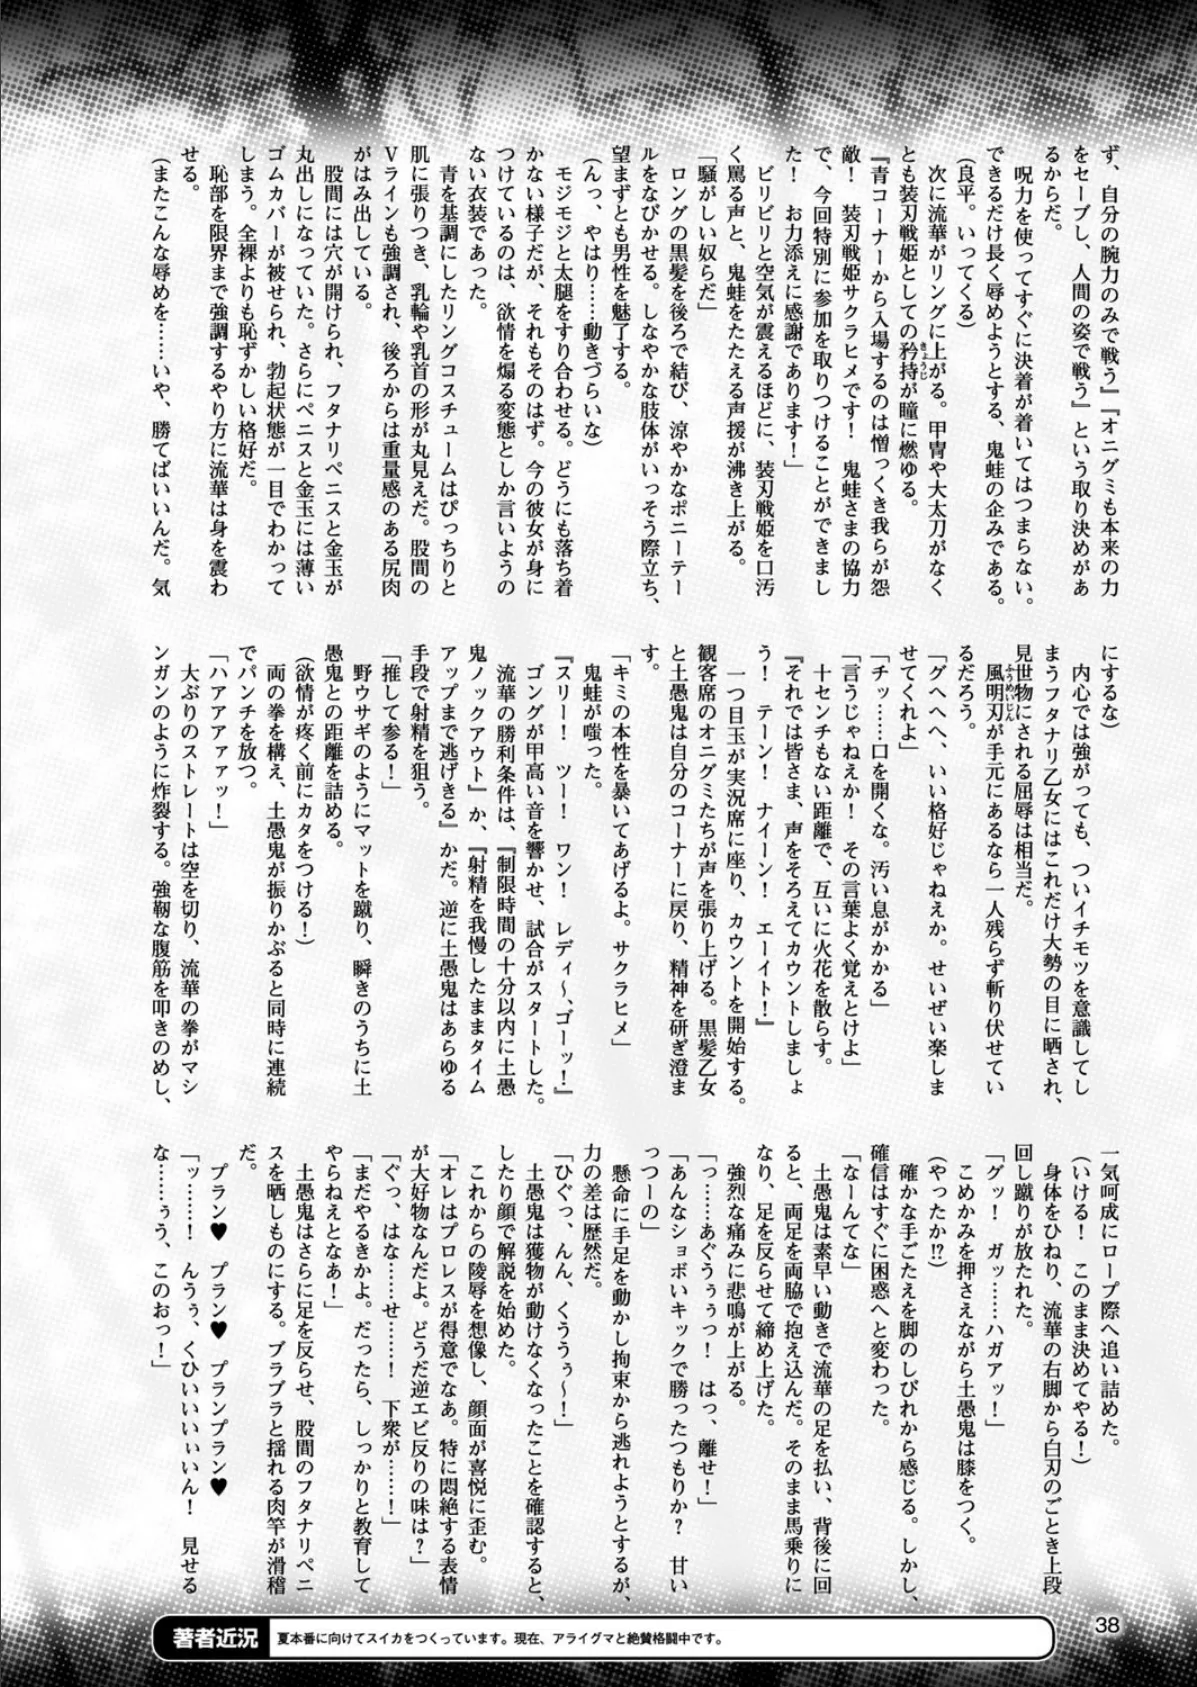 ず、自分の腕力のみで戦う』『オニグミも本来の力
をセーブし、人間の姿で戦う』という取り決めがあ
るからだ。
呪力を使ってすぐに決着が着いてはつまらない。
できるだけ長く辱めようとする、鬼蛙の企みである。
(良平。いってくる)
次に流華がリングに上がる。甲冑や大太刀がなく
とも装刃戦姫としての矜持が瞳に燃ゆる。
『青コーナーから入場するのは憎っくき我らが怨
敵！　装刃戦姫サクラヒメです！　鬼蛙さまの協力
で、今回特別に参加を取りつけることができまし
た！　お力添えに感謝であります！』
ビリビリと空気が震えるほどに、装刃戦姫を口汚
く罵る声と、鬼蛙をたたえる声援が沸き上がる。
「騒がしい奴らだ」
ロングの黒髪を後ろで結び、涼やかなポニーテー
ルをなびかせる。しなやかな肢体がいっそう際立ち、
望まずとも男性を魅了する。
(んっ、やはり……動きづらいな)
モジモジと太腿をすり合わせる。どうにも落ち着
かない様子だが、それもそのはず。今の彼女が身に
つけているのは、欲情を煽る変態としか言いようの
ない衣装であった。
青を基調にしたリングコスチュームはぴっちりと
肌に張りつき、乳輪や乳首の形が丸見えだ。股間の
Vラインも強調され、後ろからは重量感のある尻肉
がはみ出している。
股間には穴が開けられ、フタナリペニスと金玉が
丸出しになっていた。さらにペニスと金玉には薄い
ゴムカバーが被せられ、勃起状態が一目でわかって
しまう。全裸よりも恥ずかしい格好だ。
恥部を限界まで強調するやり方に流華は身を震わ
せる。
(またこんな辱めを……いや、勝てばいいんだ。気
にするな)
内心では強がっても、ついイチモツを意識してし
まうフタナリ乙女にはこれだけ大勢の目に晒され、
見世物にされる屈辱は相当だ。
風明刃が手元にあるなら一人残らず斬り伏せてい
るだろう。
「グヘヘヘ、いい格好じゃねえか。せいぜい楽しま
せてくれよ」
「チッ……口を開くな。汚い息がかかる」
「言うじゃねえか！　その言葉よく覚えとけよ」
十センチもない距離で、互いに火花を散らす。
『それでは皆さま、声をそろえてカウントしましょ
う！　テーン！　ナイーン！　エーイト！』
一つ目玉が実況席に座り、カウントを開始する。
観客席のオニグミたちが声を張り上げる。黒髪乙女
と土愚鬼は自分のコーナーに戻り、精神を研ぎ澄ま
す。
「キミの本性を暴いてあげるよ。サクラヒメ」
鬼蛙が嗤った。
『スリー！　ツー！　ワン！　レディ～、ゴーッ！』
ゴングが甲高い音を響かせ、試合がスタートした。
流華の勝利条件は、『制限時間の十分以内に土愚
鬼ノックアウト』か、『射精を我慢したままタイム
アップまで逃げきる』かだ。逆に土愚鬼はあらゆる
手段で射精を狙う。
「推して参る！」
野ウサギのようにマットを蹴り、瞬きのうちに土
愚鬼との距離を詰める。
(欲情が疼く前にカタをつける！)
両の拳を構え、土愚鬼が振りかぶると同時に連続
でパンチを放つ。
「ハアアアァァッ！」
大ぶりのストレートは空を切り、流華の拳がマシ
ンガンのように炸裂する。強靭な腹筋を叩きのめし、
一気呵成にロープ際へ追い詰めた。
(いける！　このまま決めてやる！)
身体をひねり、流華の右脚から白刃のごとき上段
回し蹴りが放たれた。
「グッ！　ガッ……ハガアッ！」
こめかみを押さえながら土愚鬼は膝をつく。
(やったか!?)
確かな手ごたえを脚のしびれから感じる。しかし、
確信はすぐに困惑へと変わった。
「なーんてな」
土愚鬼は素早い動きで流華の足を払い、背後に回
ると、両足を両脇で抱え込んだ。そのまま馬乗りに
なり、足を反らせて締め上げた。
強烈な痛みに悲鳴が上がる。
「っ……あぐうぅぅっ！　はっ、離せ！」
「あんなショボいキックで勝ったつもりか？　甘い
っつーの」
懸命に手足を動かし拘束から逃れようとするが、
力の差は歴然だ。
「ひぐっ、んん、くううぅ～！」
土愚鬼は獲物が動けなくなったことを確認すると、
したり顔で解説を始めた。
これからの陵辱を想像し、顔面が喜悦に歪む。
「オレはプロレスが得意でなあ。特に悶絶する表情
が大好物なんだよ。どうだ逆エビ反りの味は？」
「ぐっ、はな……せ……！　下衆が……！」
「まだやるきかよ。だったら、しっかりと教育して
やらねえとなあ！」
土愚鬼はさらに足を反らせ、股間のフタナリペニ
スを晒しものにする。ブラブラと揺れる肉竿が滑稽
だ。
プラン♥　プラン♥　プランプラン♥
「ッ……！　んうぅ、くひいいいぃいん！　見せる
な……ぅう、このおっ！」
38
著者近況
夏本番に向けてスイカをつくっています。現在、アライグマと絶賛格闘中です。